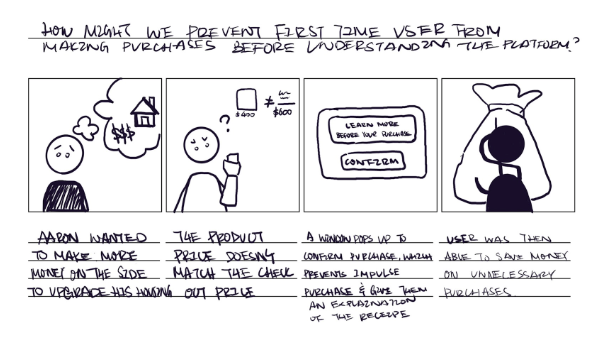 HOW MIGHT WE PREVENT FIRST TIME USER FROM
MAKING PURCHASES BEFORE UNDERSTANDING THE PLATFORM?
$$$
?
$400
≠
$600
LEARN MORE
BEFORE YOUR PURCHASE
CONFIRM
AARON WANTED
TO MAKE MORE
MONEY ON THE SIDE
TO UPGRADE HIS HOUSING
THE PRODUCT
PRICE DOESNG
MATCH THE CHECK
OUT PRICE
A WINDOW POPS UP TO
CONFIRM PURCHASE, WHICH
PREVENTS IMPULSE
PURCHASE & GIVE THEM
AN EXPLAINATION
OF THE RECEIPE
USER WAS THEN
ABLE TO SAVE MONEY
ON UNNECESSARY
PURCHASES